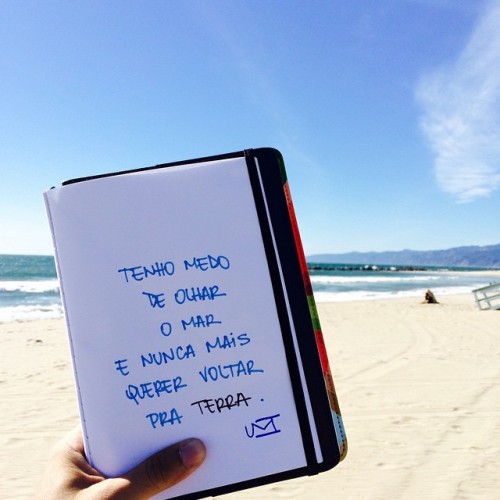 TENHO MEDO
DE OLHAR
O MAR
E NUNCA MAIS
QUERER VOLTAR
PRA TERRA.